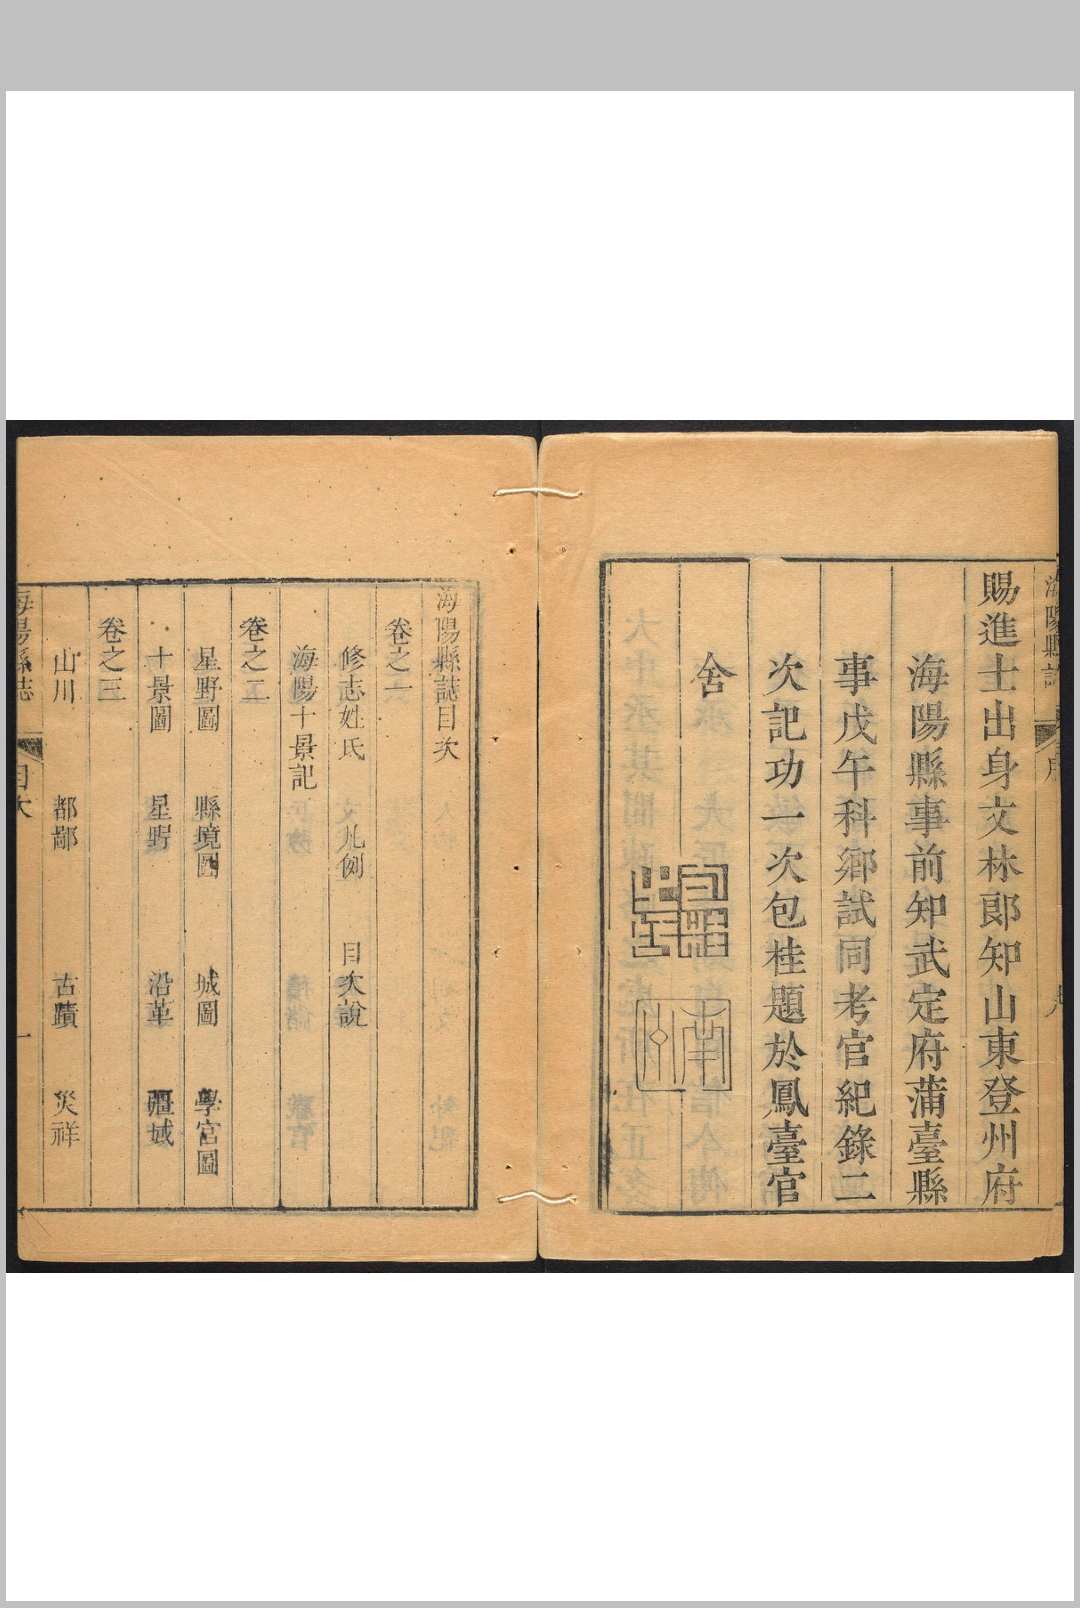 賜進士出身文林郎知山東登州府
海陽縣事前知武定府蒲臺縣
事戊午科鄉試同考官紀錄二
次記功一次包桂題於鳳臺官
舍
海陽縣誌目次
卷之一
修志姓氏 凡例 目次說
海陽十景記
卷之二
星野圖 縣境圖 城圖 學宮圖
十景圖 星野 沿革 疆域
卷之三
山川 都鄙 古蹟 災祥
海陽縣誌 目次 一